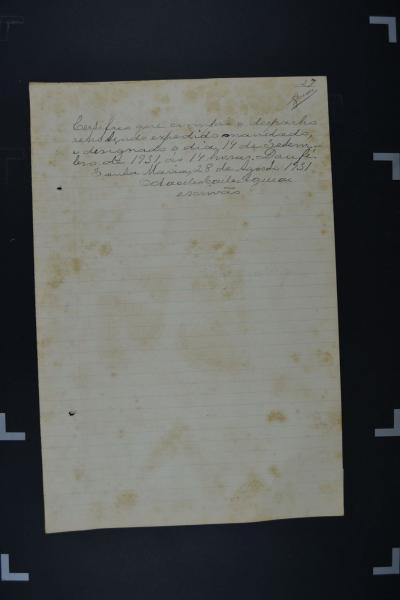 27
Certifico que cumpri o despacho
retro, sendo expedido mandado,
e designado o dia 14 de Setem-
bro de 1931 ás 14 horas. Dou fé.
Santa Maria, 28 de Agosto 1931
escrivão